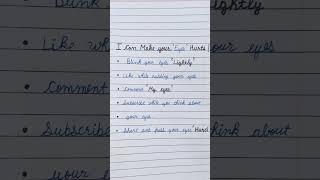 I Can Make your "Eyes" Hurts
Blink your eyes "Lightly"
Like while rubbing your eyes
Comment "My eyes"
Subscribe while you think about
your eyes
Share and pull your eyes Hard